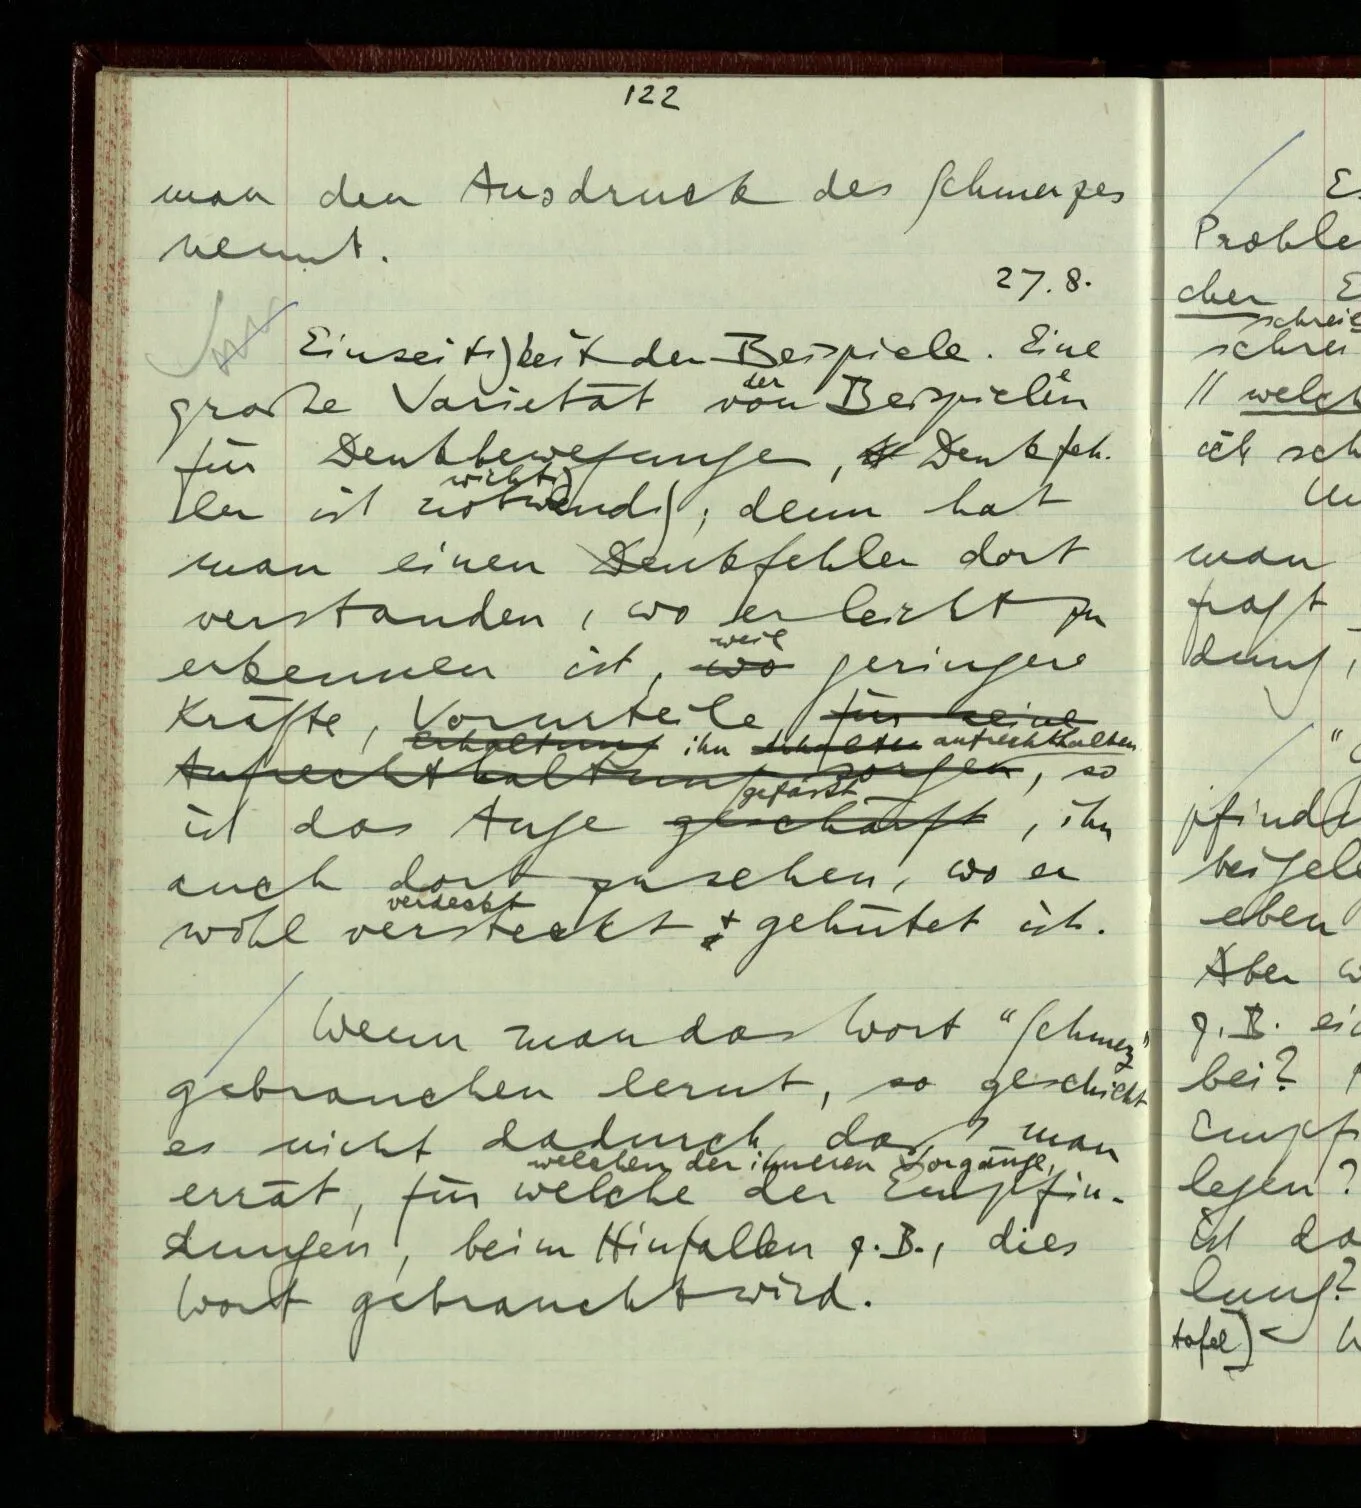 122
man den Ausdruck des Schmerzes
nennt.
27.8.
Einseitigkeit der Beispiele. Eine
große Varietät von Beispielen
der e
für Denkbewegungen, Denkfeh-
wichtig
ler ist notwendig; denn hat
man einen Denkfehler dort
verstanden, wo er leicht zu
weil
erkennen ist, wo geringere
Kräfte, Vorurteile für seine
Erhaltung ihn erhalten aufrechthalten
Aufrechthaltung sorgen, so
gefasst
ist das Auge geschärft, ihn
auch dort zu sehen, wo er
verdeckt
wohl versteckt & gehütet ist.
Wenn man das Wort "Schmerz"
gebrauchen lernt, so geschieht
es nicht dadurch, daß man
welchen der inneren Vorgänge,
errät, für welche der Empfin-
dungen, beim Hinfallen z.B., dies
Wort gebraucht wird.
Proble
cher
schrei
schrei
// welch
ich sch
man
fragt
dung,
pfinde
beigele
eben
Aber w
z.B. ei
bei?
Empf
legen?
ist da
lung?
tafel)